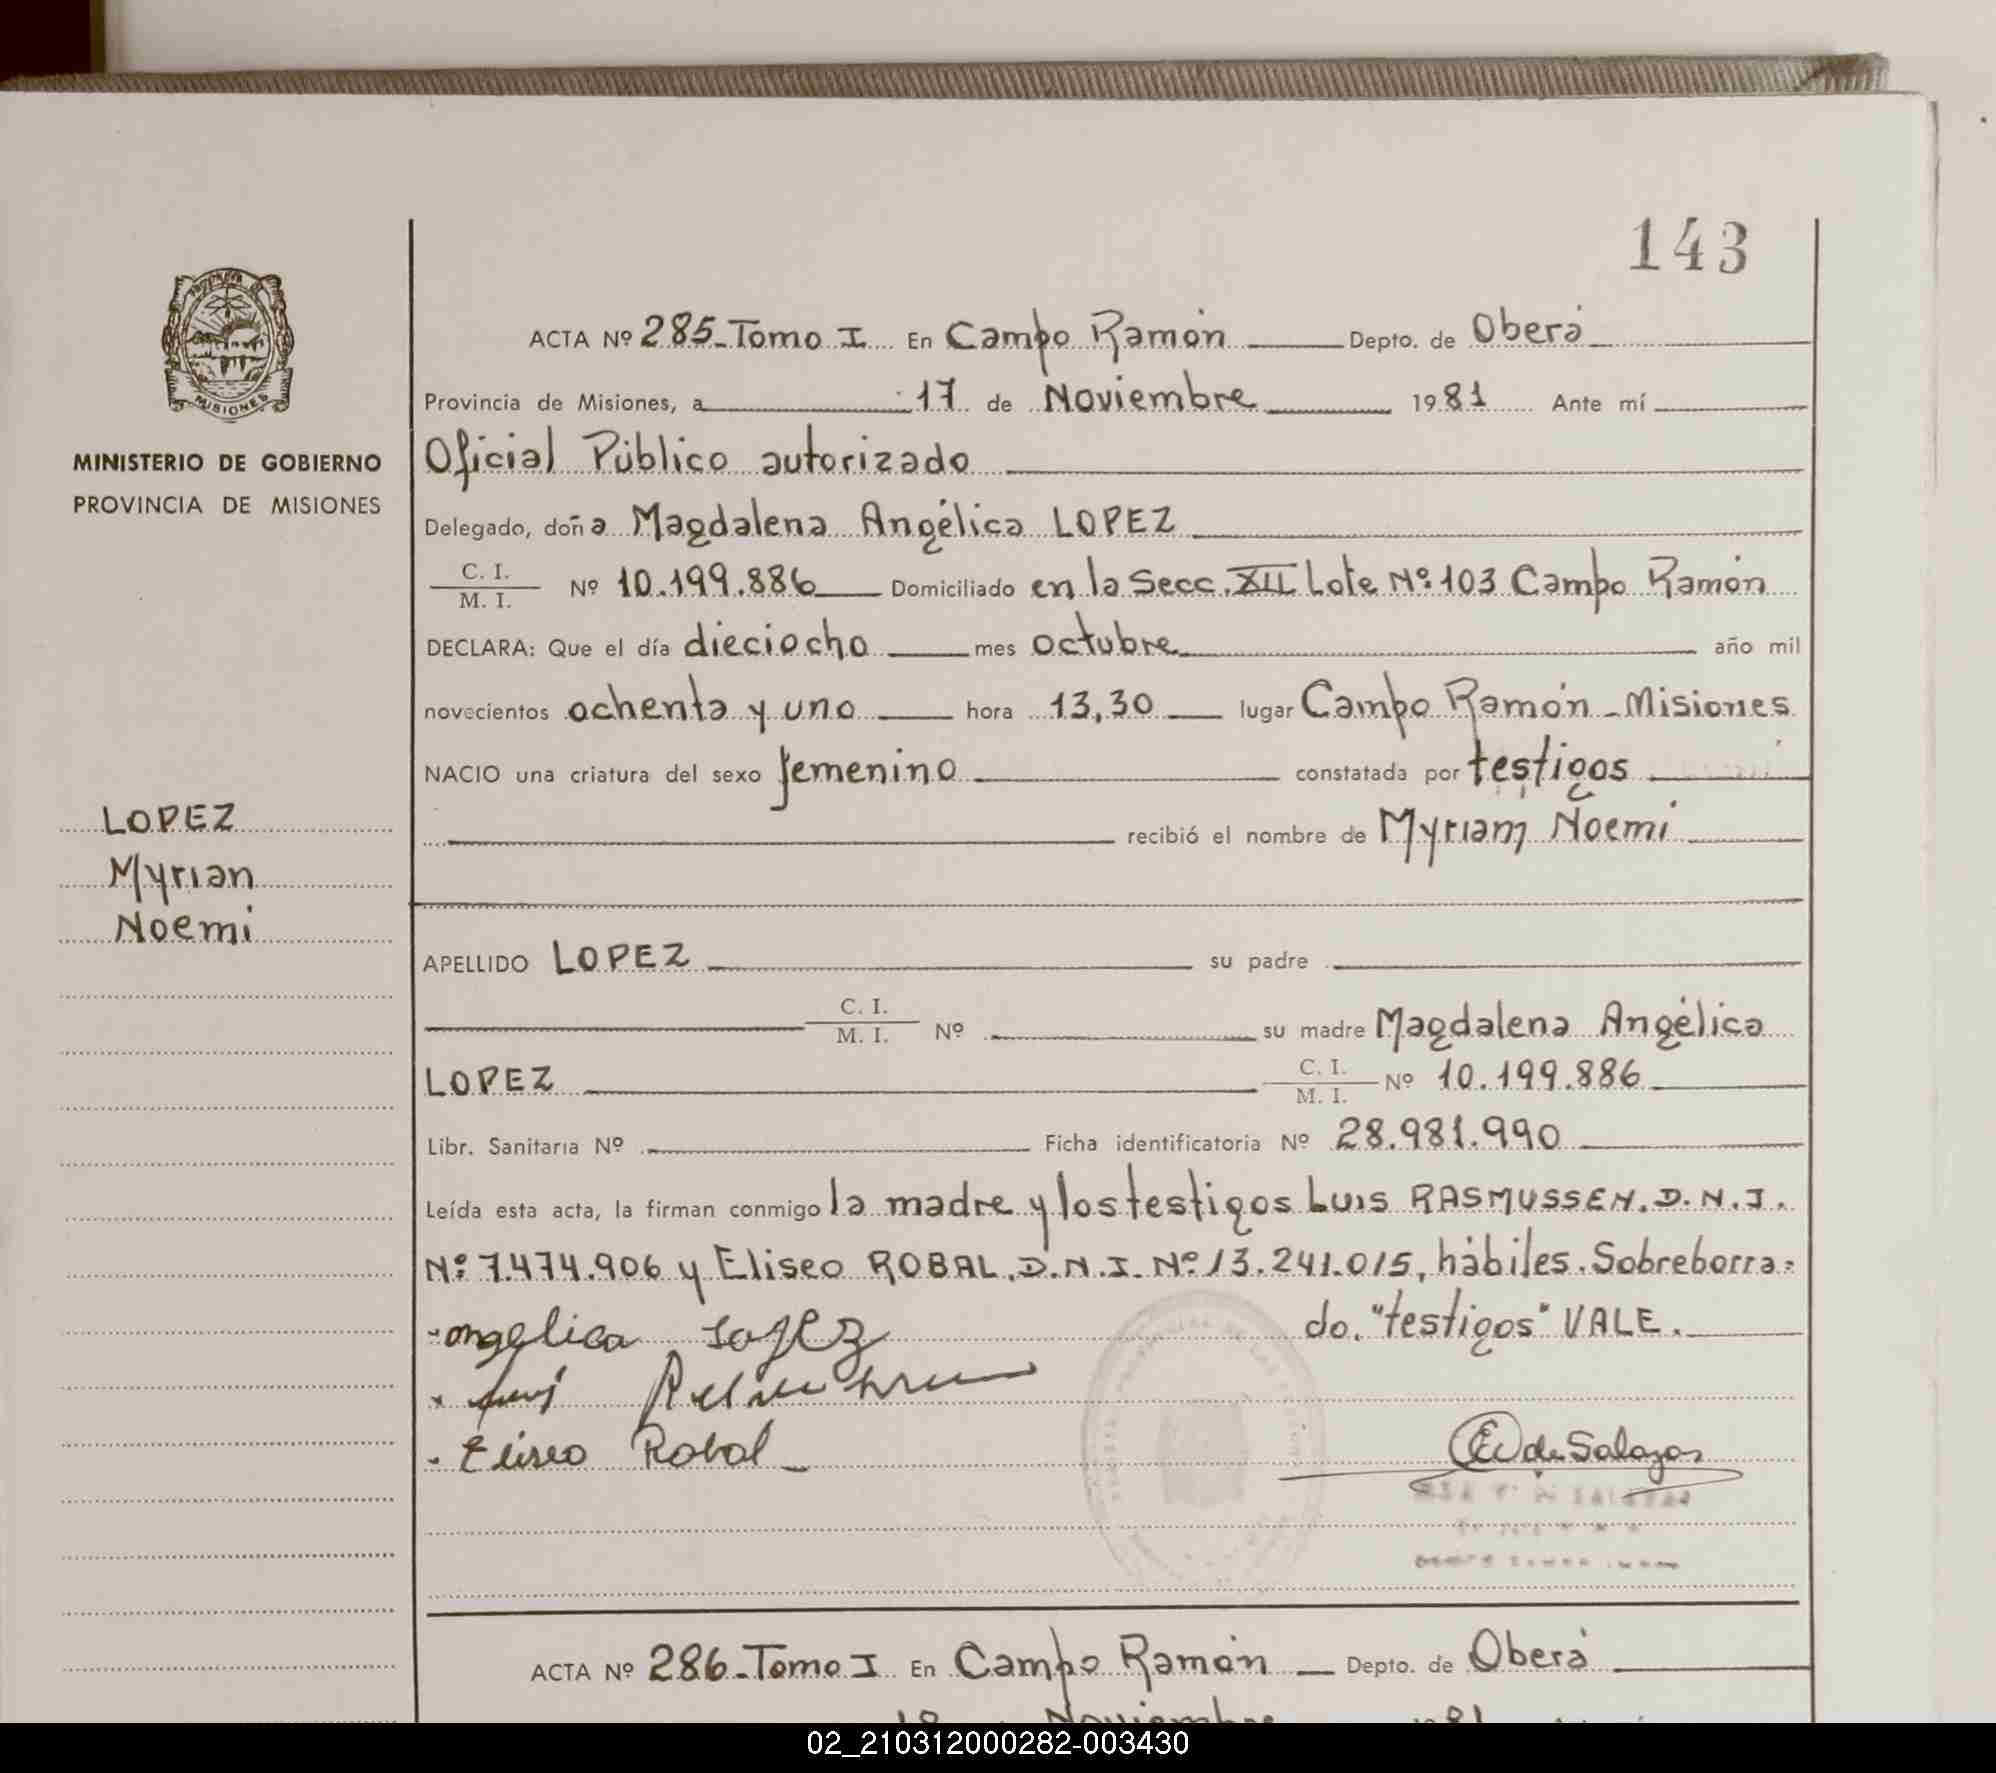 143
ACTA Nº 285-Tomo I En Campo Ramón Depto. de Oberá
Provincia de Misiones, a 17 de Noviembre 1981 Ante mí
MINISTERIO DE GOBIERNO
PROVINCIA DE MISIONES
MISIONES
Oficial Público autorizado
Delegado, doña Magdalena Angélica LOPEZ
C. I.
M. I. Nº 10.199.886 Domiciliado en la Secc. XII Lote Nº 103 Campo Ramón
DECLARA: Que el día dieciocho mes octubre año mil
novecientos ochenta y uno hora 13,30 lugar Campo Ramón - Misiones
NACIO una criatura del sexo femenino constatada por testigos
recibió el nombre de Myriam Noemí
LOPEZ
Myrian
Noemi
APELLIDO LOPEZ su padre
C. I.
M. I. Nº su madre Magdalena Angélica
LOPEZ C. I.
M. I. Nº 10.199.886
Libr. Sanitaria Nº Ficha identificatoria Nº 28.981.990
Leída esta acta, la firman conmigo la madre y los testigos Luis RASMUSSEN. D.N.I.
Nº 7.474.906 y Eliseo ROBAL. D.N.I. Nº 13.241.015, hábiles. Sobreborra=
do. "testigos" VALE.
angelica Lopez
Eliseo Robal
de Salazar
ACTA Nº 286-Tomo I En Campo Ramón Depto. de Oberá
Noviembre
02_210312000282-003430